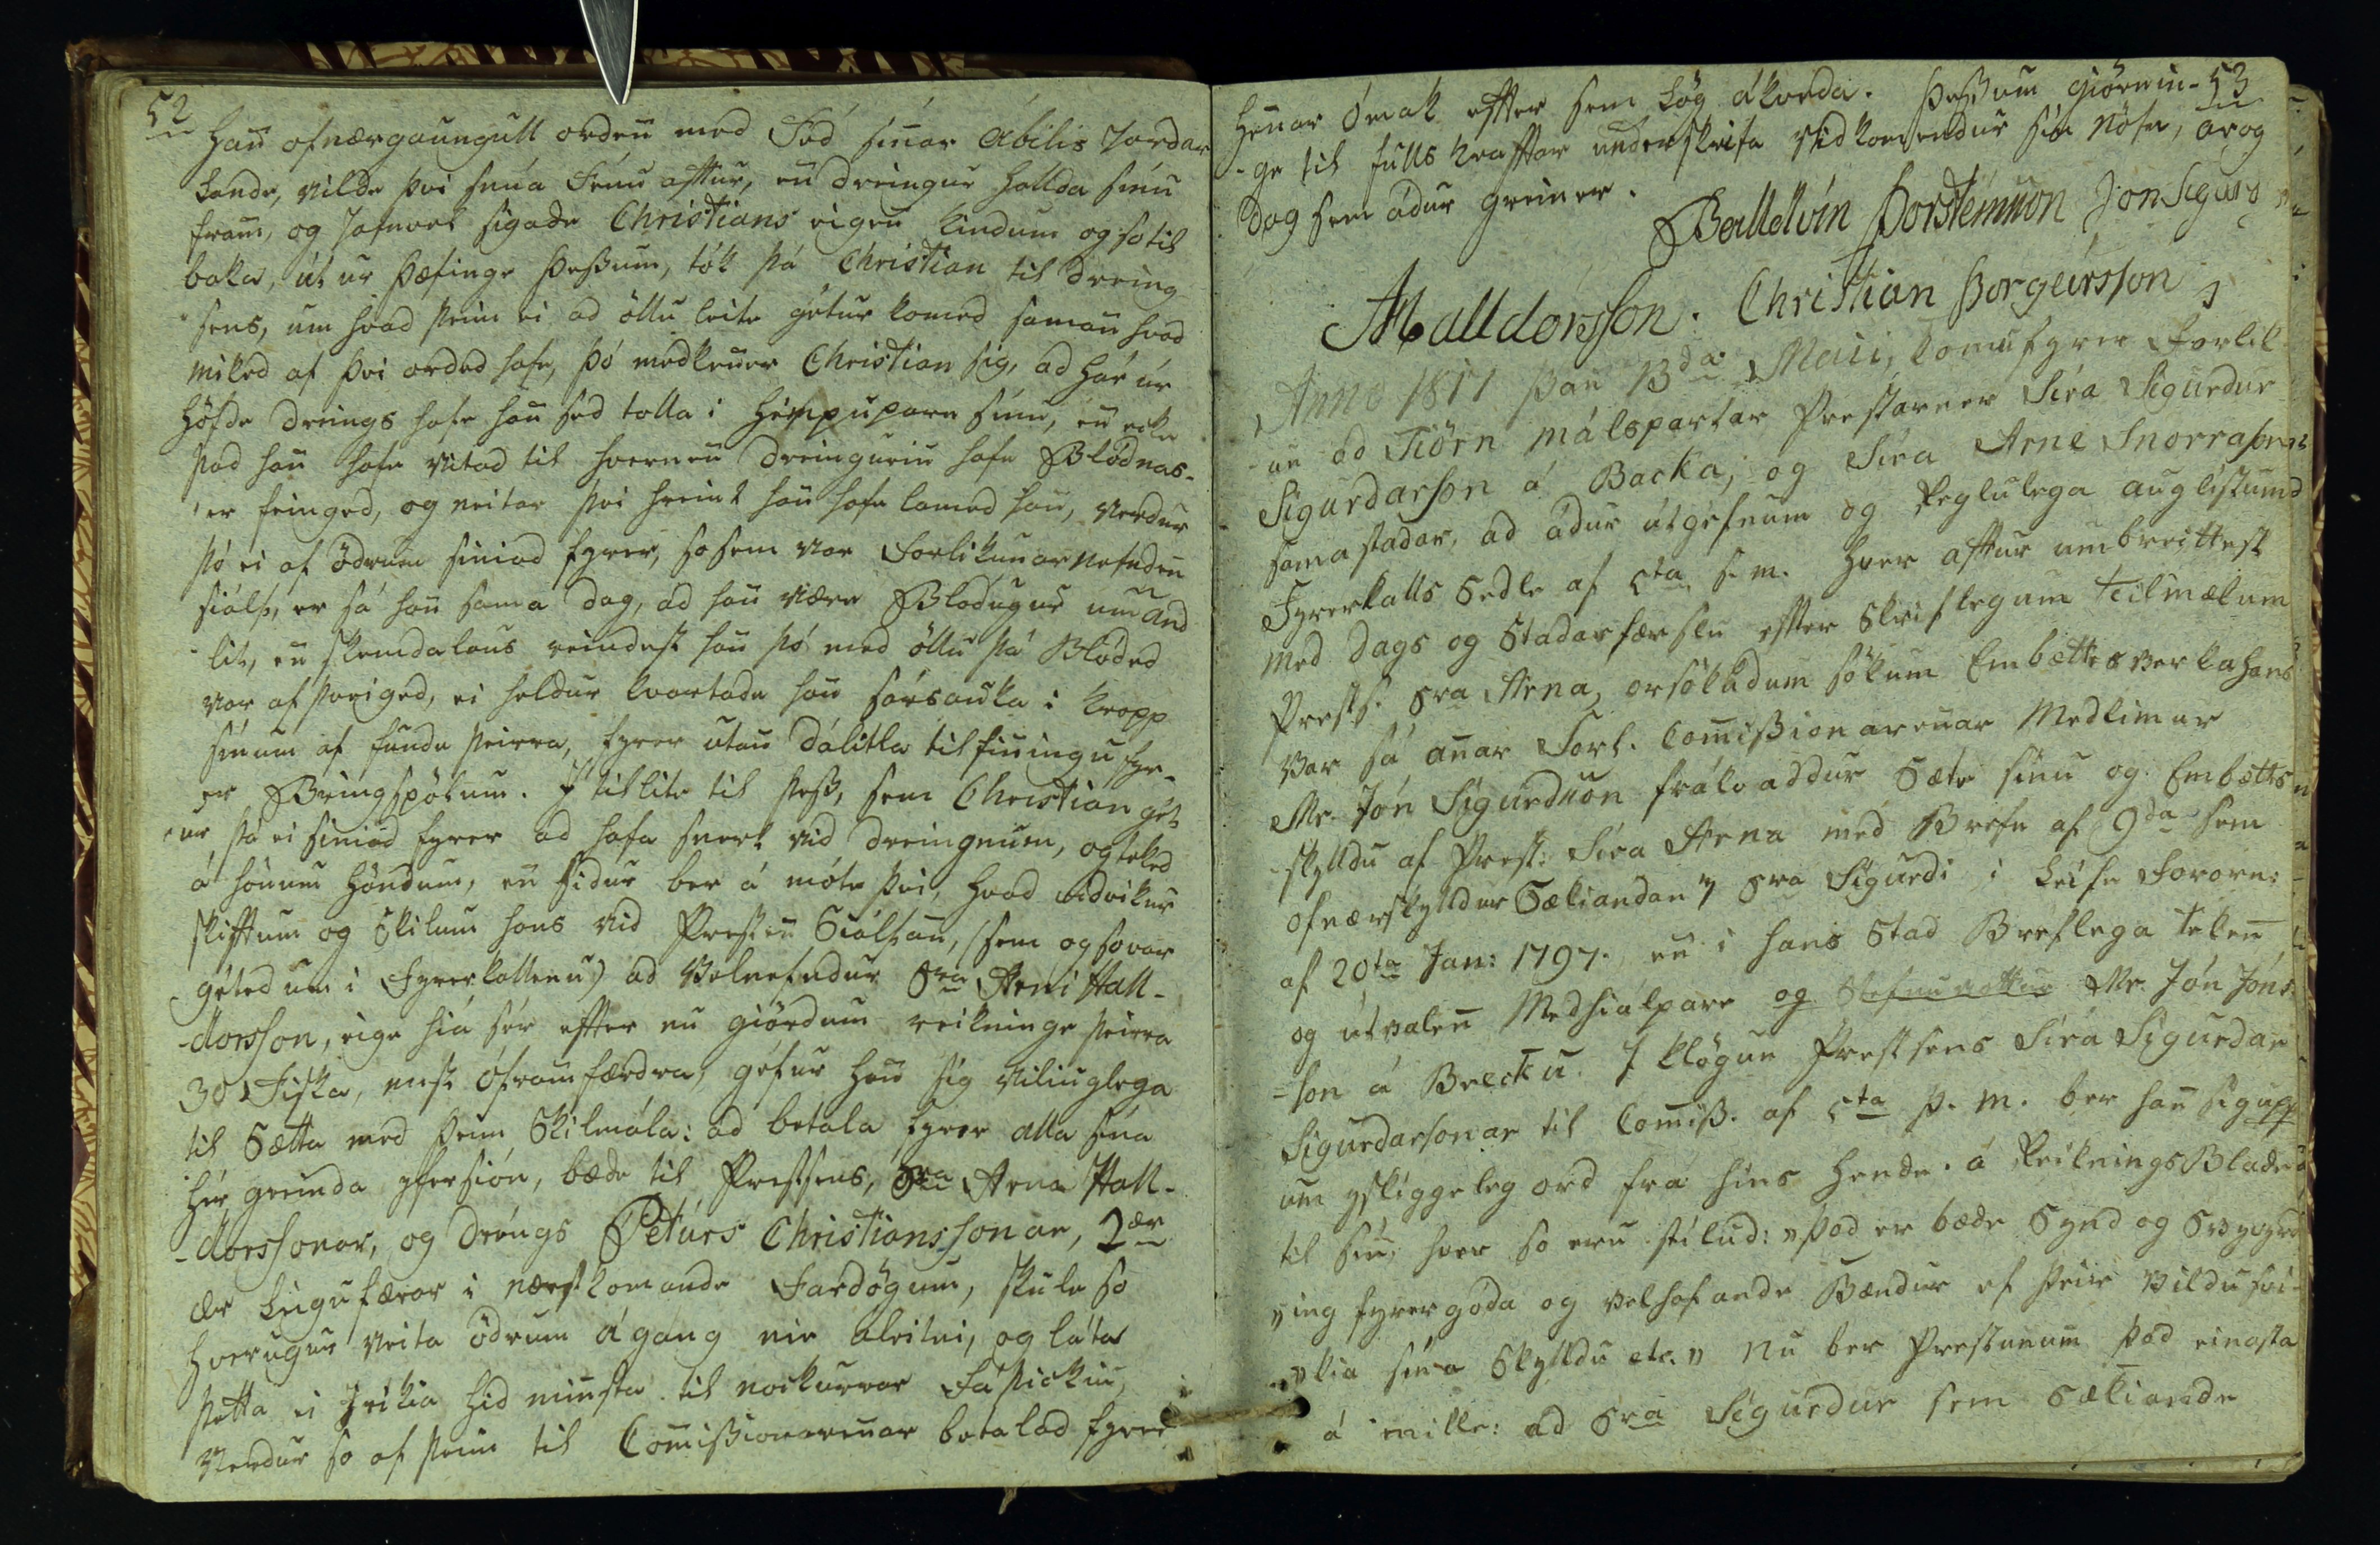 52
Han ofnærgaungull orden med Féd sinar Ábilis Jardar
lande, vilde þvi snua Fénu aftur, en dreingur hallda sinu
fram, og jafnvel sigade Christians eigen kindum og so til
baka, út ur þæfinge þessum, tók þá Christian til dreing
sens, um hvad þeim ei ad öllu leite gétur komed saman hvad
miked af þvi orded hafe, þó medkenner Christian sig, ad hár úr
höfde dreings hafe han séd tolla i hempuporn sinu, en ecke
þad han hafe vitad til hvernen dreingurin hafe Blodnas-
er feinged, og neitar þvi hreint han hafe lamed han, verdur
þó ei af ödrum siniad fyrer, so sem var Forlikunarnefnden
siálf, er sá han sama dag, ad han være Blodugur um And
lit, en skemdalaus reindest han þó med öllu þá Bloded
var af þveiged, ei heldur kvartade han sársauka i kropp
sinum af funde þeirra, fyrer utan dálitla tilfiningu fyr-
er Bringspölum. I tilliti til þess, sem Christian gét
ur þó ei siniad fyrer ad hafa snert vid dreingnum, og teked
á hönum höndum, en sidur ber á móte þvi, hvad vidvikur
skiftum og Skilum hans vid Presten Siálfan, (sem og so var
géted um i Fyrerkallenu) ad Velnefndur Sra Arni Hall-
dorsson, eige hiá sér efter nu giördum reikninge þeirra
30 Fiska, mest óframfærdra, géfur han sig viliuglega
til Sætta med þeim Skilmála: ad betala fyrer alla sina
hér greinda yfersión, bæde til Prestsens, Sra Arna Hall-
dorssonar, og Dreings Peturs Christianssonar, 2ær
ær Leigufærar i næstkomande Fardögum, skule so
hverugur veita ödrum ágang nie áleitni, og láta
þetta ei hrikia hid minsta til nockurrar Fáþickiu,
Verdur so af þeim til Commissionarennar betalad fyrer
53
hennar ómak efter sem Lög ákveda. Þessum giörnin-
ge til fulls kraftar underskrifa vidkomendur sin Nöfn, ár og
dag sem ádur greiner.
Balldvin Þorsteinnson Jon Sigurds
AHalldorsson. Christian Þorgeirsson
Anno 1817 þan 13da Maii, komu fyrer Forlik
un ad Tiörn málspartar Prestarner Sira Sigurdur
Sigurdarson á Backa, og Sira Arne Snorrason
sama stadar, ad ádur útgefnum og Reglulega auglistum
Fyrerkalls Sedle af 5ta s. m. hver aftur umbreittest
med dags og Stadarfærslu efter Skriflegum tilmælum
Prests. Sra Arna, orsökudum sökum Embættesverka hans
Var sá anar Forl. Commissionarennar Medlimur
Mr. Jón Sigurdsson frákvaddur Sæte sinu og Embætts
skylldu af Prest. Sira Arna med Brefe af 9da sem
ofnærskylldur Sækiandanum Sra Sigurdi i Leife Forordn:
af 20ta Jan: 1797. en i hans Stad Breflega teken
og útvalen Medhiálpare og Stefnuvottur Mr. Jón Jóns
son á Brecku. I klögun Prestsens Sira Sigurdar
Sigurdarsonar til Commiss. af 5ta þ. m. ber han sig upp
um ysliggeleg ord frá hins hende á ReikningsBlade
til sin, hver so eru stilud: "þad er bæde Synd og Svyvyrd
"ing fyrer góda og velhafande Bændur ef þeir vildu svi-
"kia sina Skylldu etc." Nu ber Prestunum þad einasta
á mille: ad Sra Sigurdur sem Sækiande